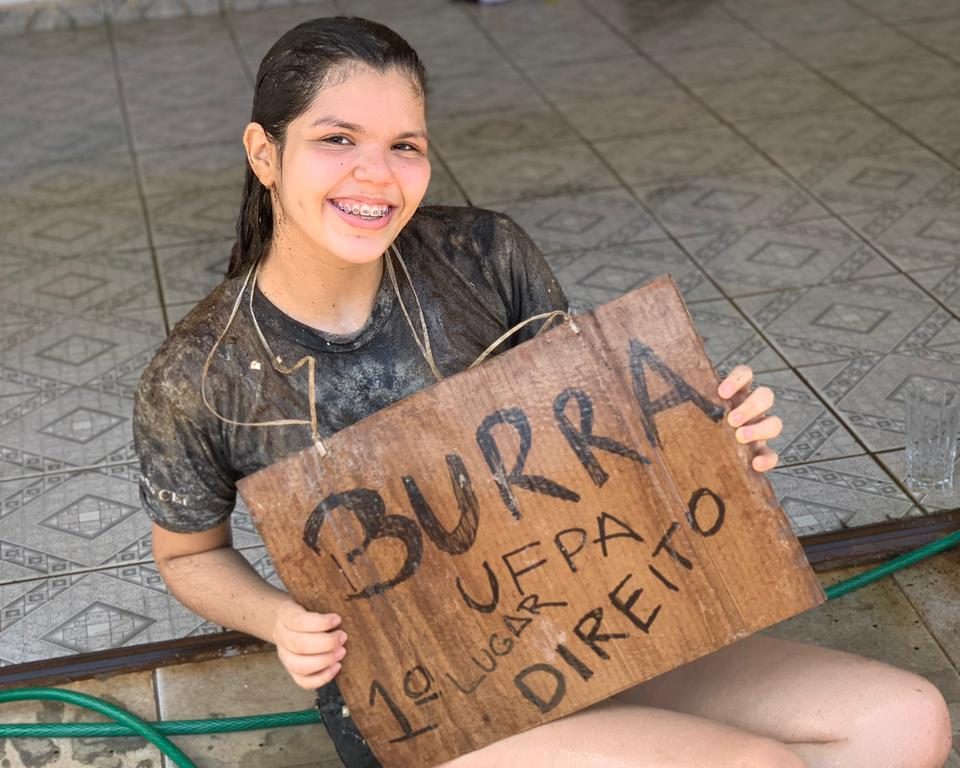 BURRA
UFPA
1º LUGAR
DIREITO